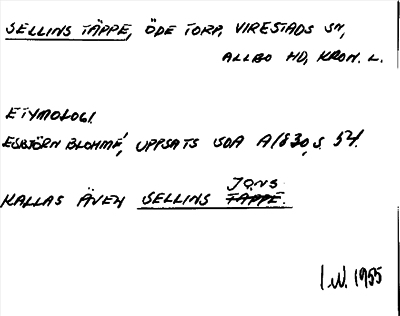 SELLINS TÄPPE, ÖDE TORP, VIRESTADS SN,
ALLBO HD, KRON. L.
ETYMOLOGI
ESBJÖRN BLOHMÉ, UPPSATS A1830, S. 54.
JONS
KALLAS ÄVEN SELLINS TÄPPE.
1955